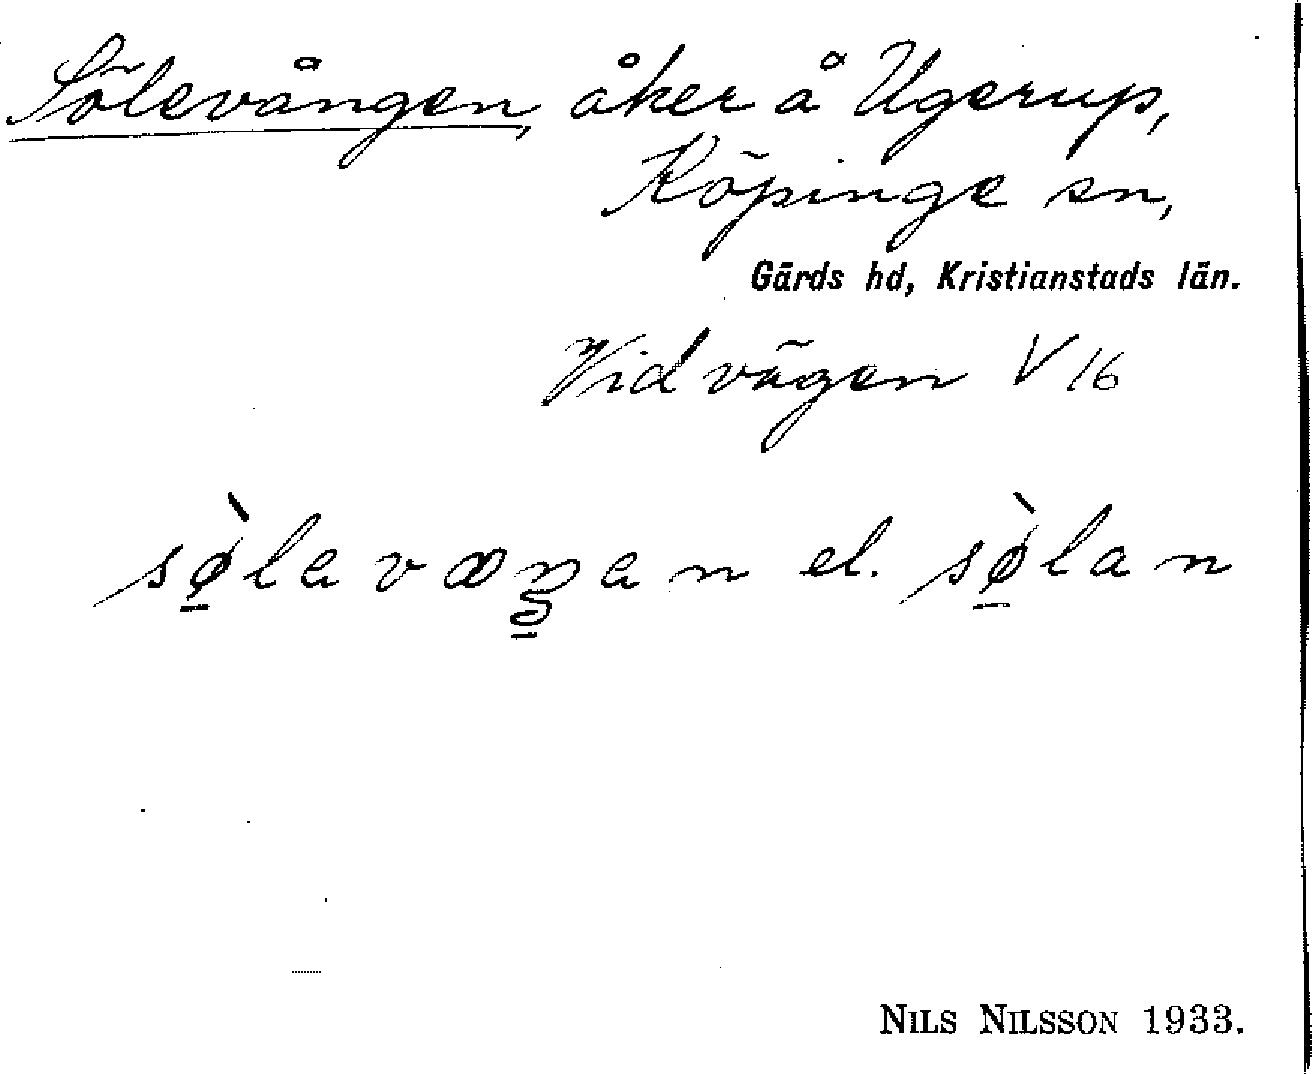 Sölevången, åker å Ugerup,
Köpinge sn,
Gärds hd, Kristianstads län.
Vid vägen V 16
sø̠̀lavæŋ̠an el. sø̠̀lan
NILS NILSSON 1933.